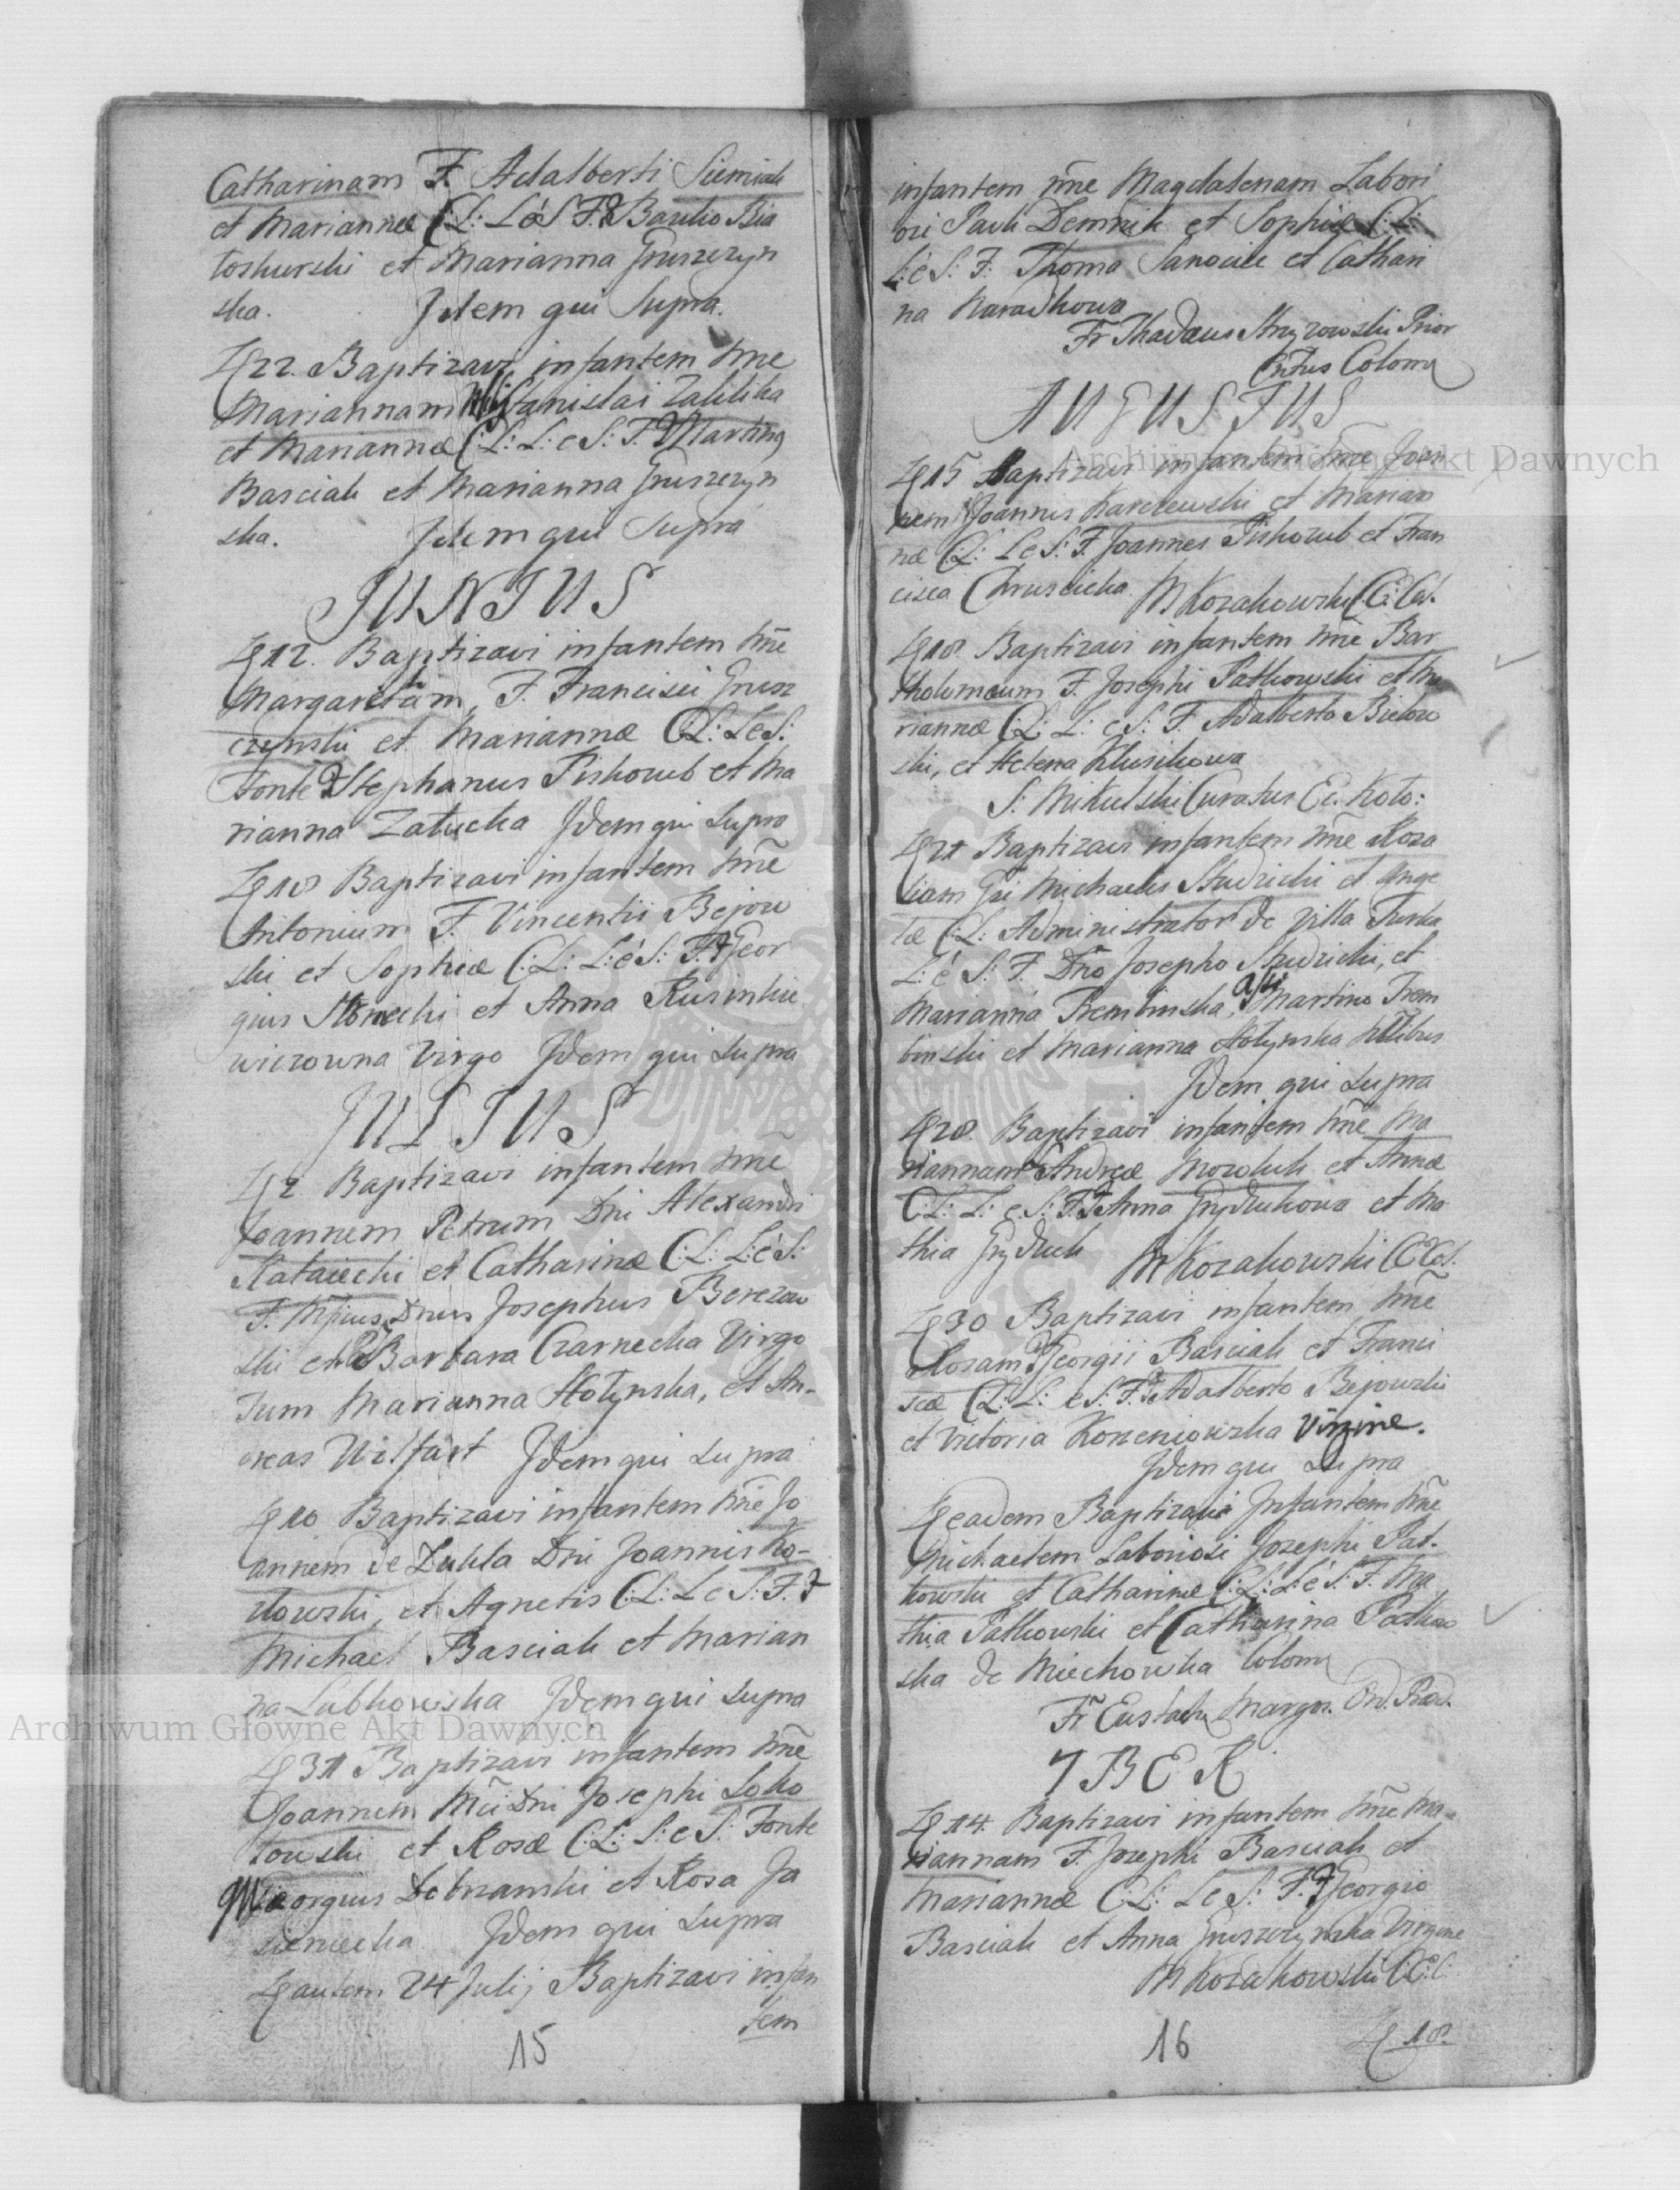 Catharinam F. Adalberti Siemiak
et Mariannæ C: L: L é S F. Basilio Bia
toskurski et Marianna Gruszczyn
ska. Idem qui Supra.
22. Baptizavi infantem nne
Mariannam Stanislai Zaklika
et Mariannæ C: L: L: e S: F. Martino
Basciak et Marianna Gruszczyn
ska. Idem qui Supra
JUNIUS
12. Baptizavi infantem nne
Margaretam, F. Francisci Grusz
czynski et Mariannæ C: L: L e S:
Fonte Stephanus Piskorub et Ma
rianna Zalucka Idem qui supra
18 Baptizavi infantem nne
Antonium F. Vincentii Bejow
ski et Sophiæ C: L: L: é S: F. Geor
gius et Anna
wiczowna Virgo Idem qui supra
JULIUS
2 Baptizavi infantem nne
Joannem Petrum Dni Alexandri
et Catharinæ C: L: L: é S:
F. Dnus Josephus Berezow
ski et Barbara Czarnecka Virgo
Tum Marianna Hołynska, et An-
dreas Wilfart Idem qui supra
10 Baptizavi infantem nne Jo
annem de Dni Joannis Ko-
złowski, et Agnetis C: L: L e S: F.
Michael Basciak et Marian
na Lubkowska Idem qui supra
31 Baptizavi infantem nne
Joannem Dni Josephi Soko
łowski et Rosæ C: L: L: e S: Fonte
Georgius et Rosa Ja
sieniecka Idem qui supra
autem 24 Julij Baptizavi infan
tem
15
infantem nne Magdalenam Labori
osi Pauli Demnik et Sophiæ C: L:
L: é S: F: Thoma et Cathari
na
Fr Thadæus Prior
Colom
AUGUSTUS
15 Baptizavi infantem nne Joan
nem Joannis Karczewski et Marian
næ C: L: L e S: F. Joannes Piskorub et Fran
cisca Chruscicka M Kozakowski C: C:
18. Baptizavi infantem nne Bar
tholomæum F. Josephi Patkowski et Ma
riannæ C: L: L: e S: F. Adalberto Bielow
ski, et Helena Klusikowa
S: Mikulski Curatus Ec. Koło:
21 Baptizavi infantem nne Roza
liam Michaelis Studzicki et Ange
læ C: L: Administrator de Villa Turka
L: é S: F. Dno Josepho Studzicki, et
Marianna Trembinska, Martino Trem
binski et Marianna Hołynska
Idem qui supra
28. Baptizavi infantem nne Ma
riannam Andreæ et Annæ
C: L: L: e S: F. Anna Grydukowa et Ma
thia Gryduk M Kozakowski C: C:
30 Baptizavi infantem nne
Rosam Georgii Basciak et Franci
scæ C: L: L: e S: F. Adalberto Bejowski
et Victoria Korzeniowska Virgine.
Idem qui supra
eadem Baptizavi Infantem nne
Michaelem Laboriosi Josephi Pat-
kowski et Catharinæ C: L: L: é S: F. Ma
thia Patkowski et Catharina Patkow
ska de Miechowka Colom
Fr Eustach Margon. Ord. Præd.
7BER
14. Baptizavi infantem nne Ma-
riannam F. Josephi Basciak et
Mariannæ C: L: L e S: F. Georgio
Basciak et Anna Gruszczynska Virgine
M Kozakowski C: C:
16
18.
Archiwum Główne Akt Dawnych
Archiwum Główne Akt Dawnych